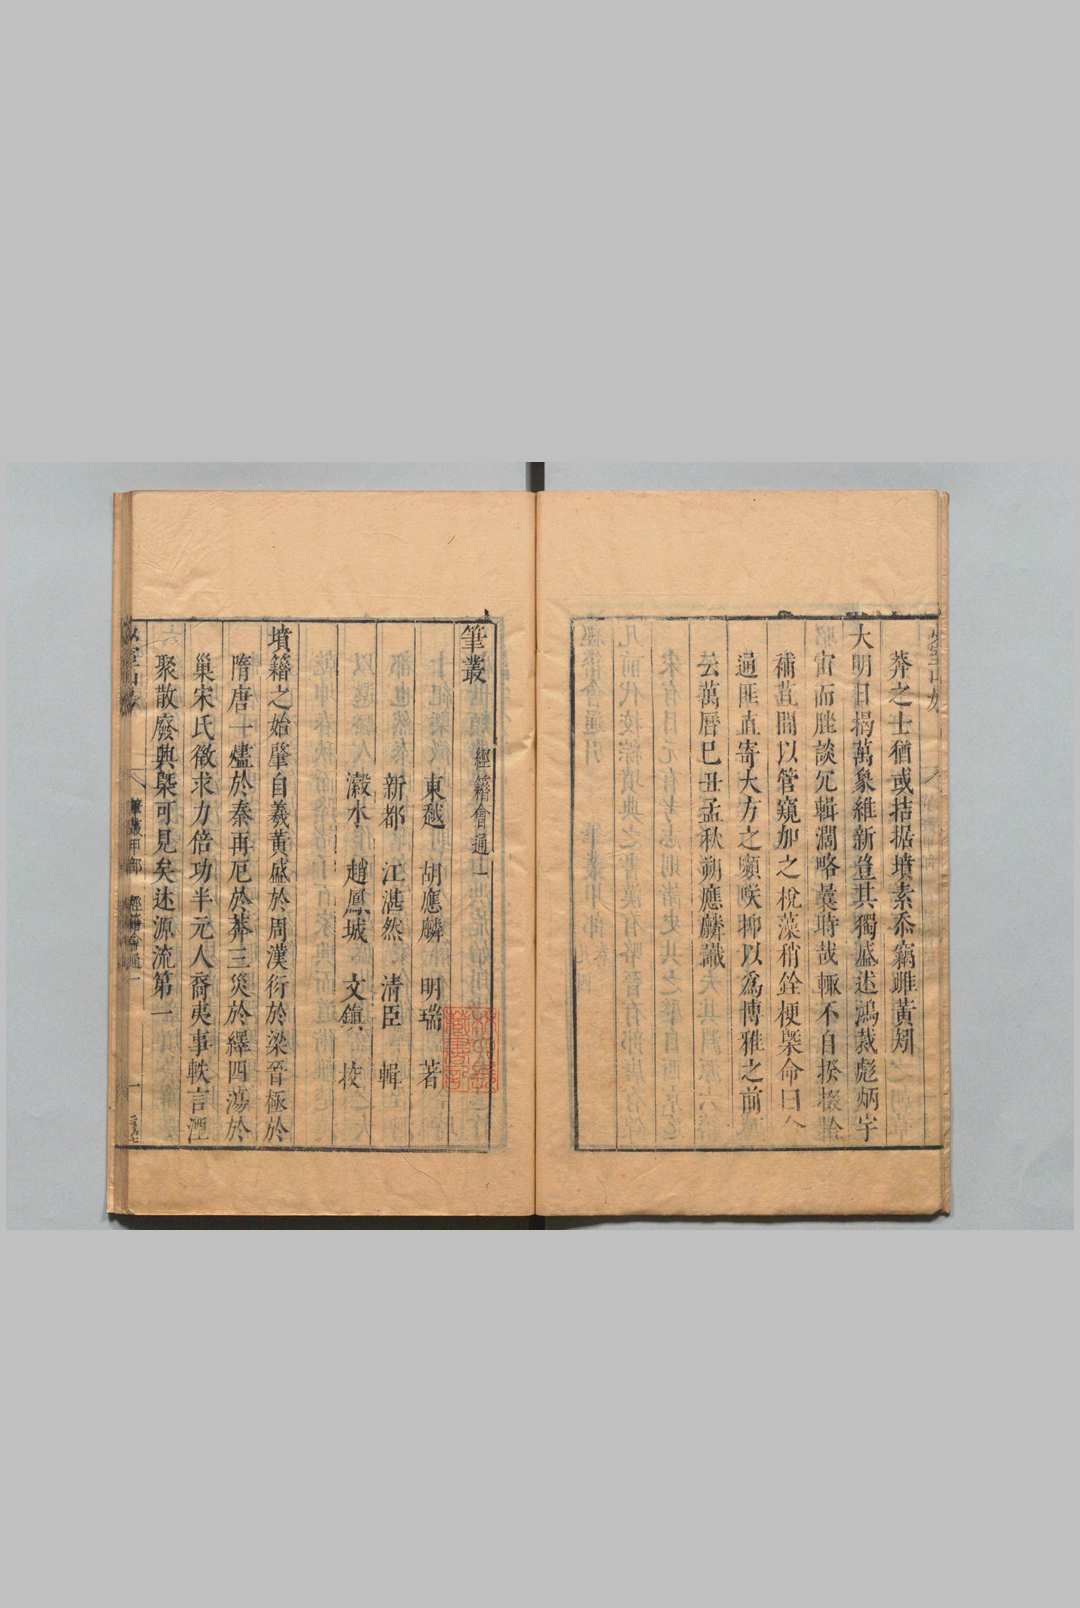 莽之士猶或拮据墳素忝竊雌黃矧
大明日揭萬象維新豈其獨盛述鴻裁彪炳宇
宙而脞談冗輯濶略彙時哉輒不自揆掇
補苴間以管窺加之稅藻稍銓梗槩命曰
過匪直寄大方之嚬咲抑以爲博雅之前
云萬曆巳丑孟秋朔應麟識
筆叢 經籍會通一
東越 胡應麟 明瑞 著
新都 江湛然 清臣 輯
瀫水 趙鳳城 文鎭 挍
墳籍之始肇自羲黃盛於周漢衍於梁晉極於
隋唐一燼於秦再厄於莽三災於繹四蕩於
巢宋氏徵求力倍功半元人裔夷事軼言湮
聚散廢興槩可見矣述源流第一
筆叢甲部 經籍會通一 一